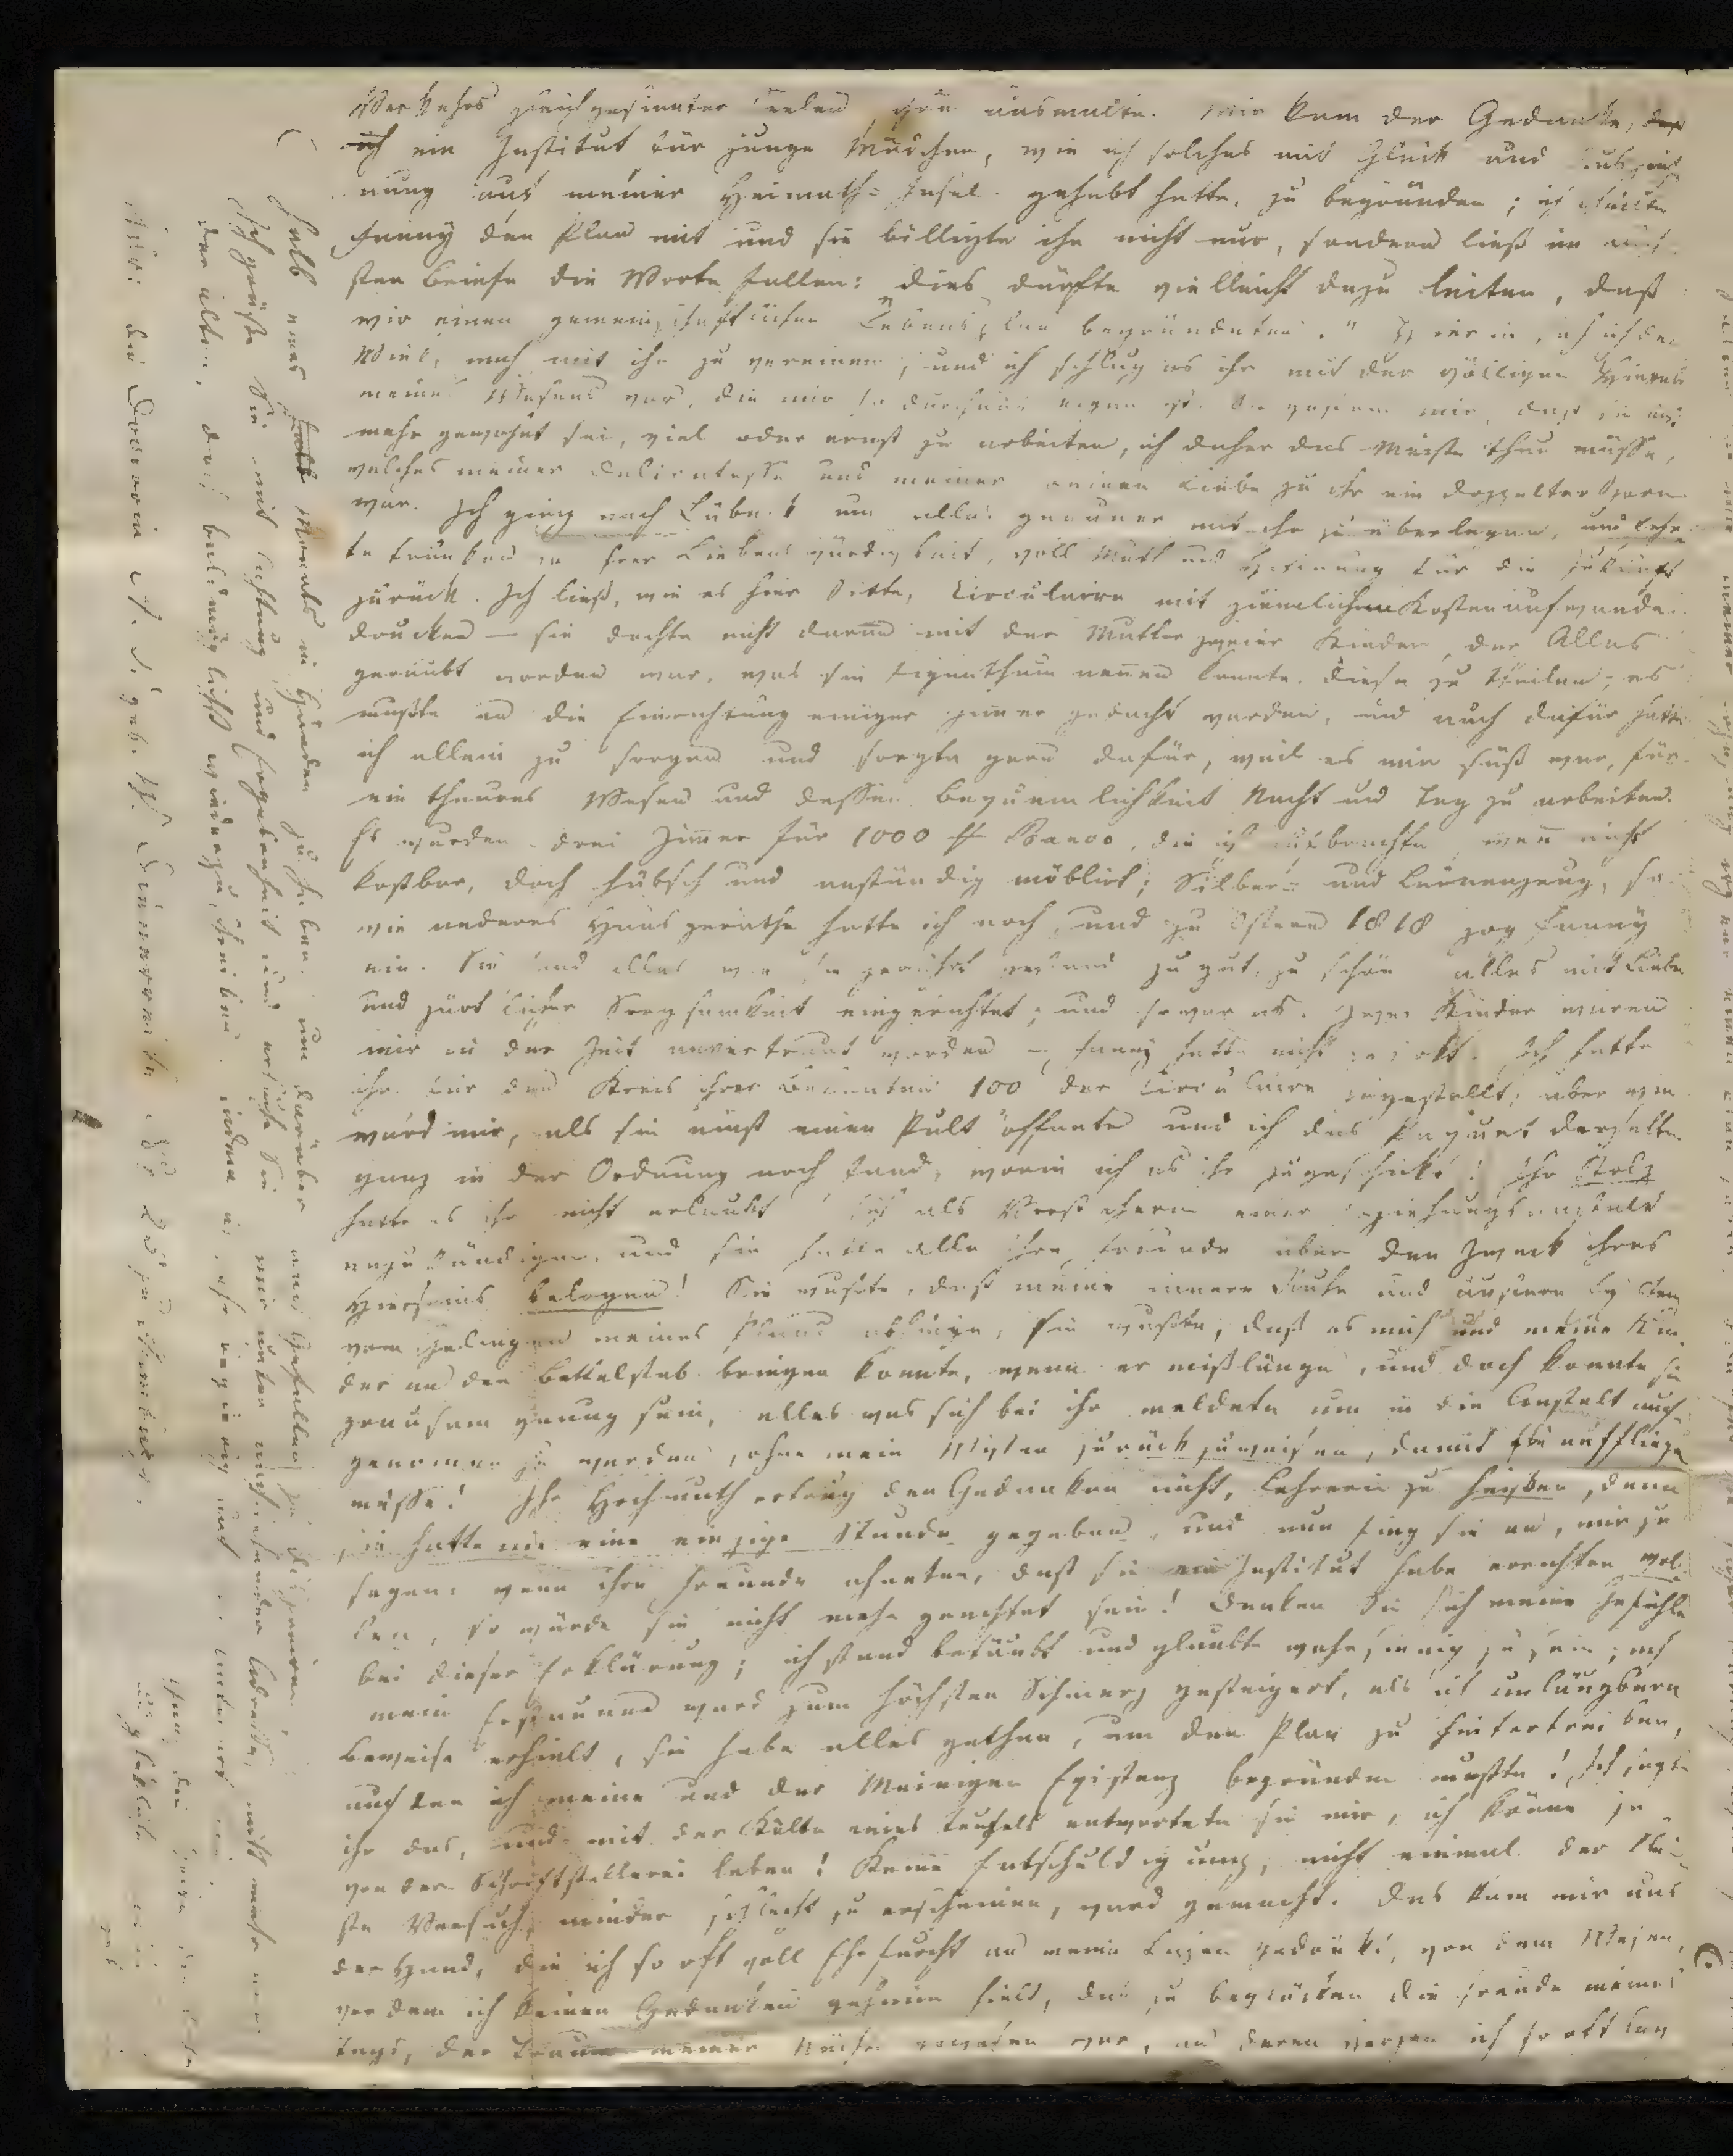 Verkehrs gleichgesinnter Seelen schön ausmalte. Mir kam der Gedanke, daß
ich ein Institut für junge Mädchen, wie ich solches mit Glück und
nung auf meiner Heimaths-Insel gehabt hatte, zu begründen; ich theilte
Fanny den Plan mit und sie billigte ihn nicht nur, sondern ließ im näch-
sten Briefe die Worte fallen: dies dürfte vielleicht dazu leiten, daß
wir einen gemeinschaftlichen Lebensplan begründeten." Hierin sah ich den
Wink, mich mit ihr zu vereinen, und ich schlug es ihr mit der völligen
meines Wesens vor, die mir so durchaus eigen ist. Sie gestand mir, daß sie nicht
mehr gewohnt sei, viel oder ernst zu arbeiten, ich daher das Meiste thun müsse,
welches meiner Delicatesse und meiner reinen Liebe zu ihr ein doppelter Sporn
war. Ich ging nach Lübeck um alles genauer mit ihr zu überlegen, und kehr-
te trunken von ihrer Liebenswürdigkeit, voll Muth und Hoffnung für die Zukunft
zurück. Ich ließ, wie es hier Sitte, Circulaire mit ziemlichem Kostenaufwande
drucken — sie dachte nicht daran mit der Mutter zweier Kinder, der Alles
geraubt worden war, was sie Eigenthum nennen konnte, diese zu theilen; es
mußte an die Einrichtung einiger Zimmer gedacht werden, und auch dafür hatte
ich allein zu sorgen und sorgte gern dafür, weil es mir süß war, für
ein theures Wesen und dessen Bequemlichkeit Nacht und Tag zu arbeiten.
Es wurden drei Zimmer für 1000 ₰ Banco, die ich aufbrachte, wenn nicht
kostbar, doch hübsch und anständig möblirt; Silber- und Leinenzeug, so
wie anderes Hausgeräthe hatte ich noch, und zu Ostern 1818 zog Fanny
ein. Sie fand alles zu gut, zu schön, alles mit Liebe
und zärtlicher Sorgsamkeit eingerichtet, und so war es. Zwei Kinder waren
mir in der Zeit anvertraut worden —, Fanny hatte nicht Ich hatte
ihr für den Kreis ihrer Bekannten 100 der Circulaire zugestellt; aber wie
ward mir, als sie einst einen Pult öffnete und ich das Paquet derselben
ganz in der Ordnung noch fand, worin ich es ihr zugeschickt! Ihr Stolz
hatte es ihr nicht erlaubt sich als Vorsteherin einer Erziehungsanstalt
anzukündigen, und sie hatte alle ihre Freunde über den Zweck ihres
Hierseins belogen! Sie wußte, daß meine innere Ruhe und äußere Existenz
vom Gelingen meines Plans abhinge, sie wußte, daß es mich und meine Kin-
der an den Bettelstab bringen konnte, wenn er mißlänge, und doch konnte sie
grausam genug sein, alles was sich bei ihr meldete um in die Anstalt auf-
genommen zu werden, ohne mein Wissen zurückzuweisen, damit sie auffliegen
müsse! Ihr Hochmuth ertrug den Gedanken nicht, Lehrerin zu heißen, denn
sie hatte nie eine einzige Stunde gegeben, und nun fing sie an, mir zu
sagen: wenn ihre Freunde ahneten, daß sie ein Institut habe errichten wol-
len, so würde sie nicht mehr geachtet sein! Denken Sie sich meine Gefühle
bei dieser Erklärung; ich stand betäubt und glaubte wahnsinnig zu sein; noch
mein Erstaunen ward zum höchsten Schmerz gesteigert, als ich unläugbare
Beweise erhielt, sie habe alles gethan, um den Plan zu hintertreiben,
auf den ich meine und der Meinigen Existenz begründen mußte! Ich sagte
ihr das, und mit der Kälte eines Teufels antwortete sie mir, ich könne ja
von der Schriftstellerei leben! Keine Entschuldigung, nicht einmal der klein-
ste Versuch, minder schlecht zu erscheinen, ward gemacht. Das kam mir aus
der Hand, die ich so oft voll Ehrfurcht an meine Lippen gedrückt, von dem Wesen,
vor dem ich keinen Gedanken geheim hielt, das zu beglücken die Freude meines
Tags, der Traum meiner Nächte gewesen war, an deren Herzen ich so oft lag
halb eines Monats in Händen zu haben, um darüber nach Gefallen zu disponiren.
Ich grüße Sie mit Achtung und Ergebenheit und ersuche Sie mir unter nachstehender Adresse, nicht mehr
der alten, doch baldmöglichst wiederzuschreiben, indem
Adr: die Doctorin